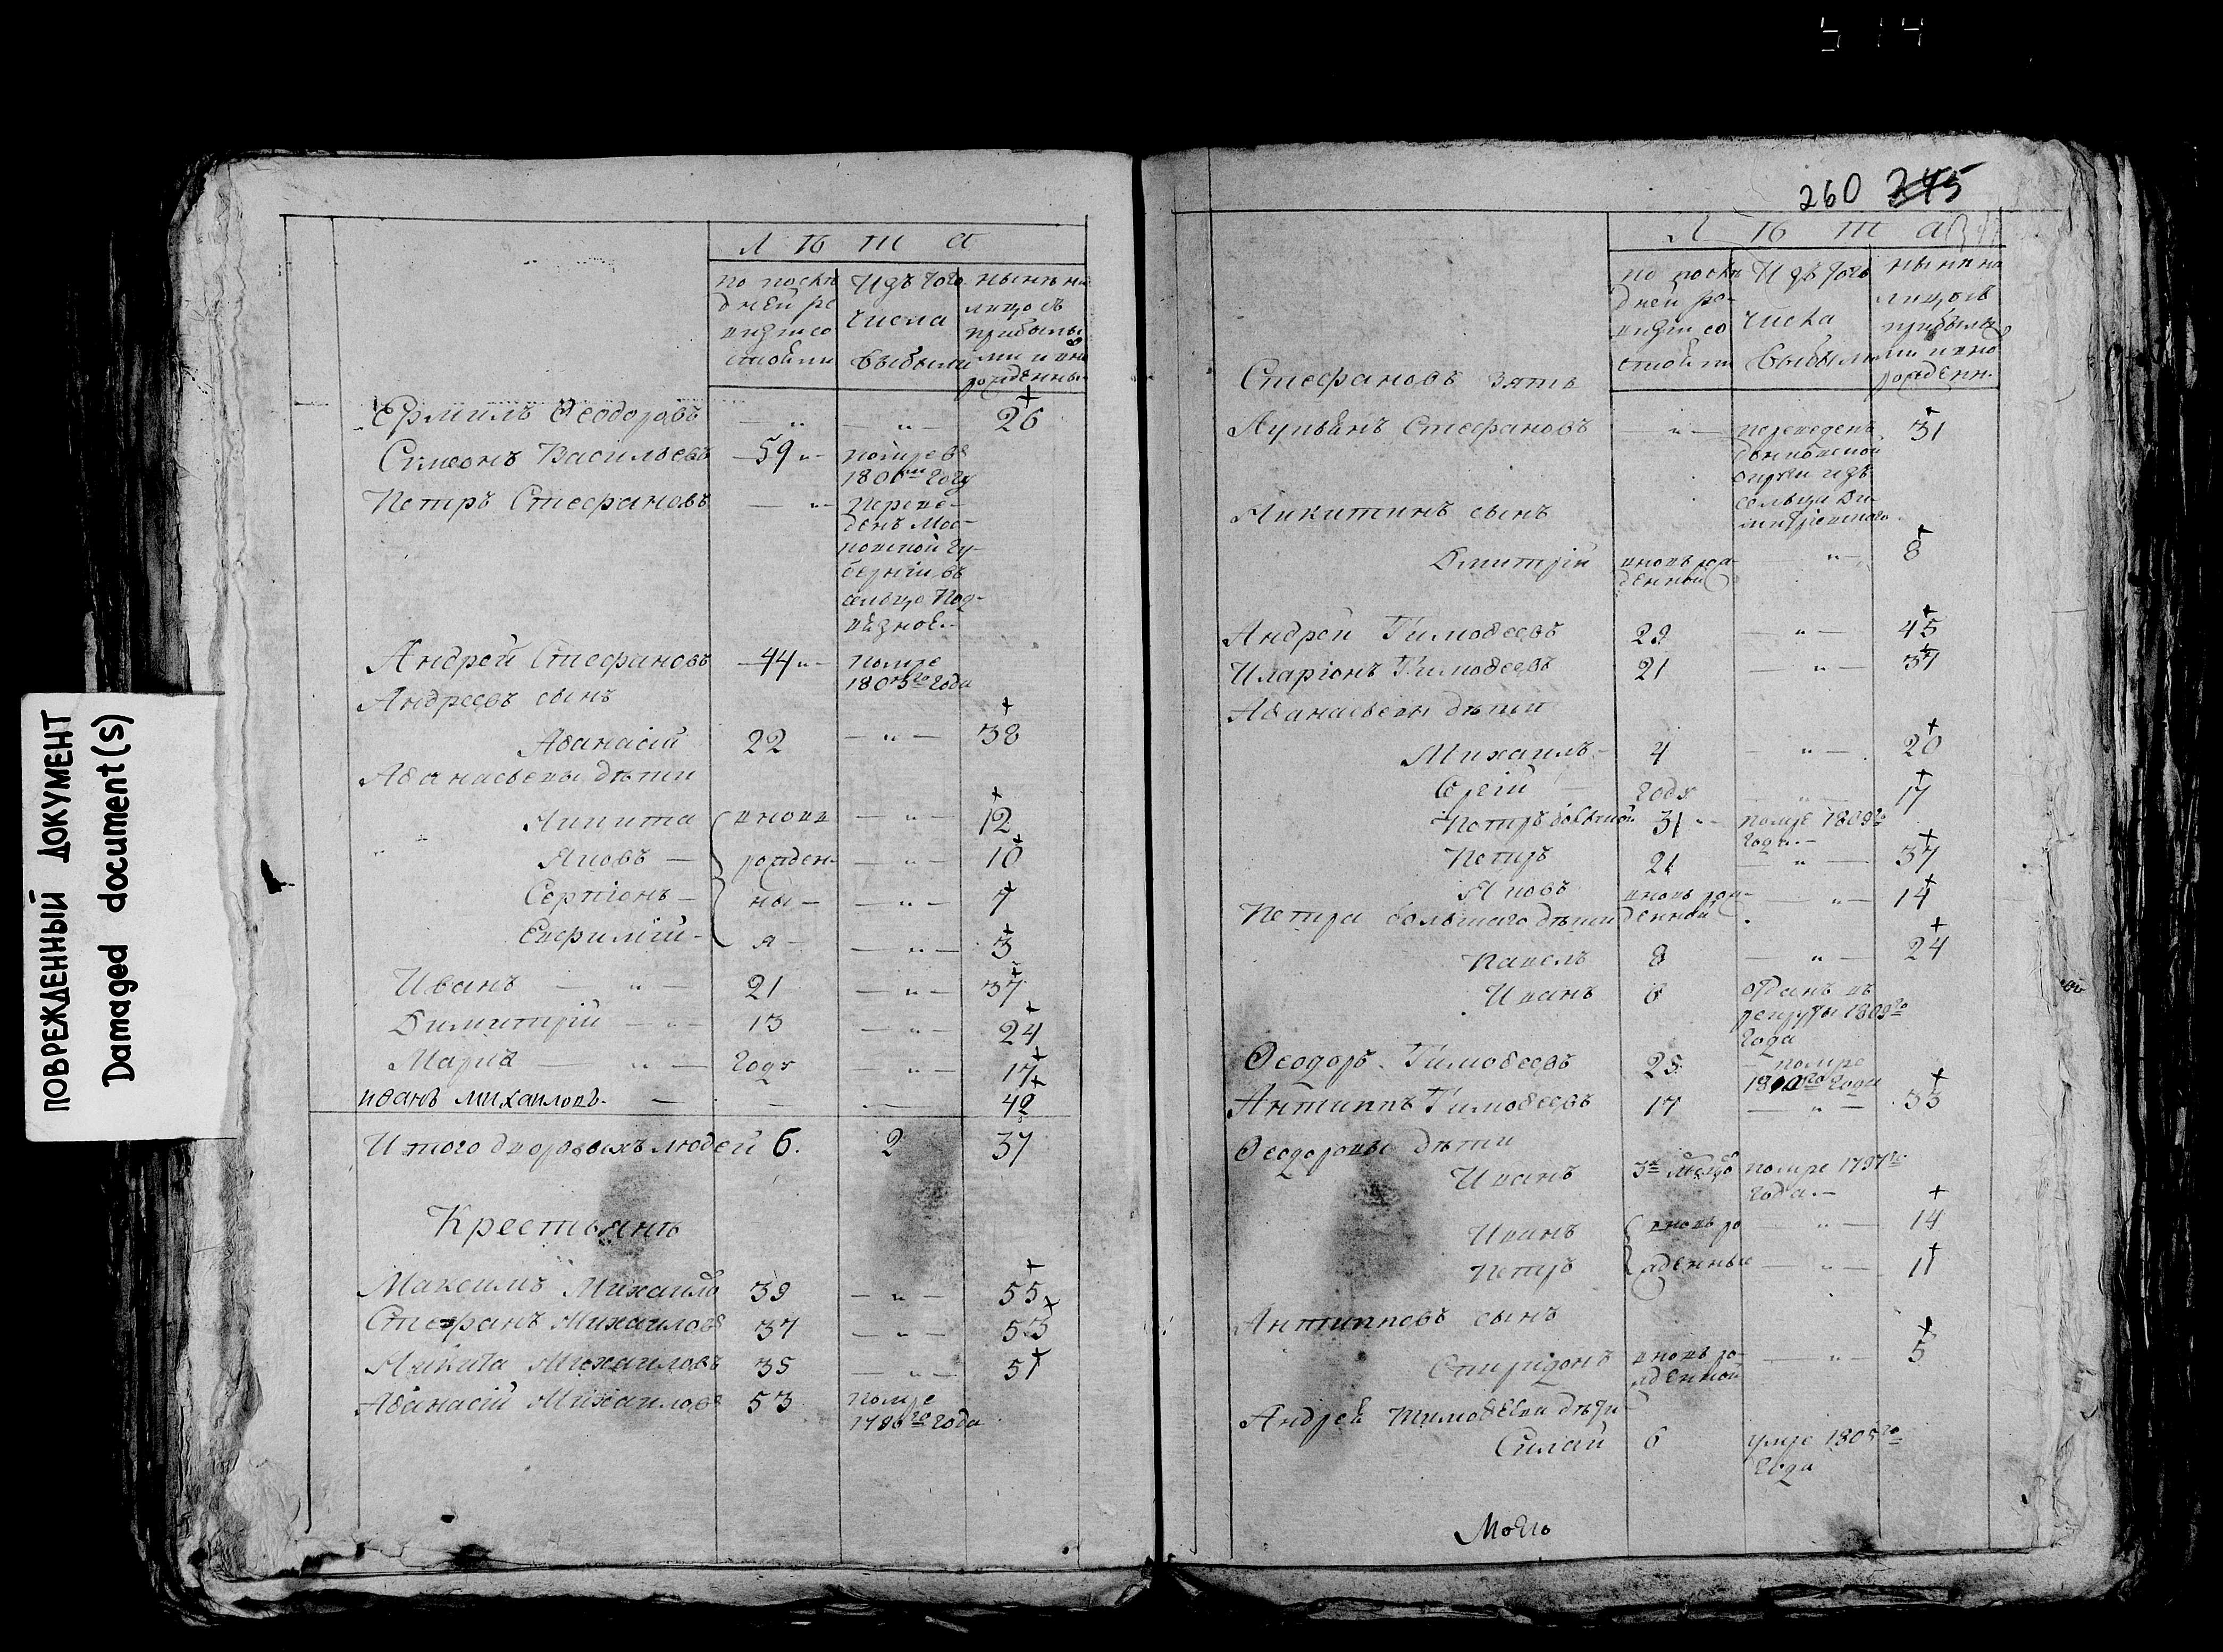 260 245
ПОВРЕЖДЕННЫЙ ДОКУМЕНТ
Damaged document(s)
Лѣта
по послѣ
дней ре
визіи со
стояли
Изъ того
числа
выбыли
нынѣ на
лицо съ
прибылы
ми и вно
рожденны
Ермилъ Ѳеодоровъ — " — — " — 26
Симеонъ Васильевъ 59 " — помре въ
180 году
Петръ Стефановъ — " — Переве-
денъ Мос-
ковской гу-
берніи въ
сельцо Под-
вязное.
Андрей Стефановъ 44 " — помре
1805го года
Андреевъ сынъ
Аѳанасій 22 — " — 38
Аѳанасьевы дѣти
Никита вновь — " — 12
Яковъ — рожден- — " — 10
Серпіонъ — ны — — " — 7
Евфимій — я — — " — 3
Иванъ — " — 21 — " — 37
Димитрій — " — 13 — " — 24
Марія — " — годъ — " — 17
иванъ михаиловъ. — — — 49
Итого дворовыхъ людей 6. 2 37
Крестьянъ
Максимъ Михаило 39 — " — 55
Стефанъ Михаилов 37 — " — 53
Никита Михаиловъ 35 — " — 51
Аѳанасій Михаилов 53 помре
года
Лѣта
по послѣ
дней ре-
визіи со
стояли
Изъ того
числа
выбыли
нынѣ на
лицо съ
прибылы
ми и вно
рожденн.
Стефановъ зять
Лукьянъ Стефановъ — " — переведенъ 31
Донковской
округи изъ
сельца Ди-
митріевского.
Никитинъ сынъ
Дмитрій вновь рож- — " — 8
денный
Андрей Тимоѳеевъ 29 — " — 45
Иларіонъ Тимоѳеевъ 21 — " — 37
Аѳанасьевы дѣти
Михаилъ — 4 — " — 20
Сергій — годъ — " — 17
Петръ большой 31 " — помре 1809го
года. —
Петръ 21 — " — 37
Яковъ вновь рож- — " — 14
Петра большаго дѣти денной
Павелъ 8 — " — 24
Иванъ 6 отданъ въ
рекруты 1809го
года
Ѳеодоръ Тимоѳеевъ 25 — помре
1810го года
Антиппъ Тимоѳеевъ 17 — " — 33
Ѳеодоровы дѣти
Иванъ 3х мѣсяц помре 1797го
года. —
Иванъ вновь ро — " — 14
Петръ жденные — " — 11
Антипповъ сынъ
Спиридонъ вновь ро- — " — 5
жденной
Андрей тимоѳееви дѣти
Силай 6 умре 1805го
года